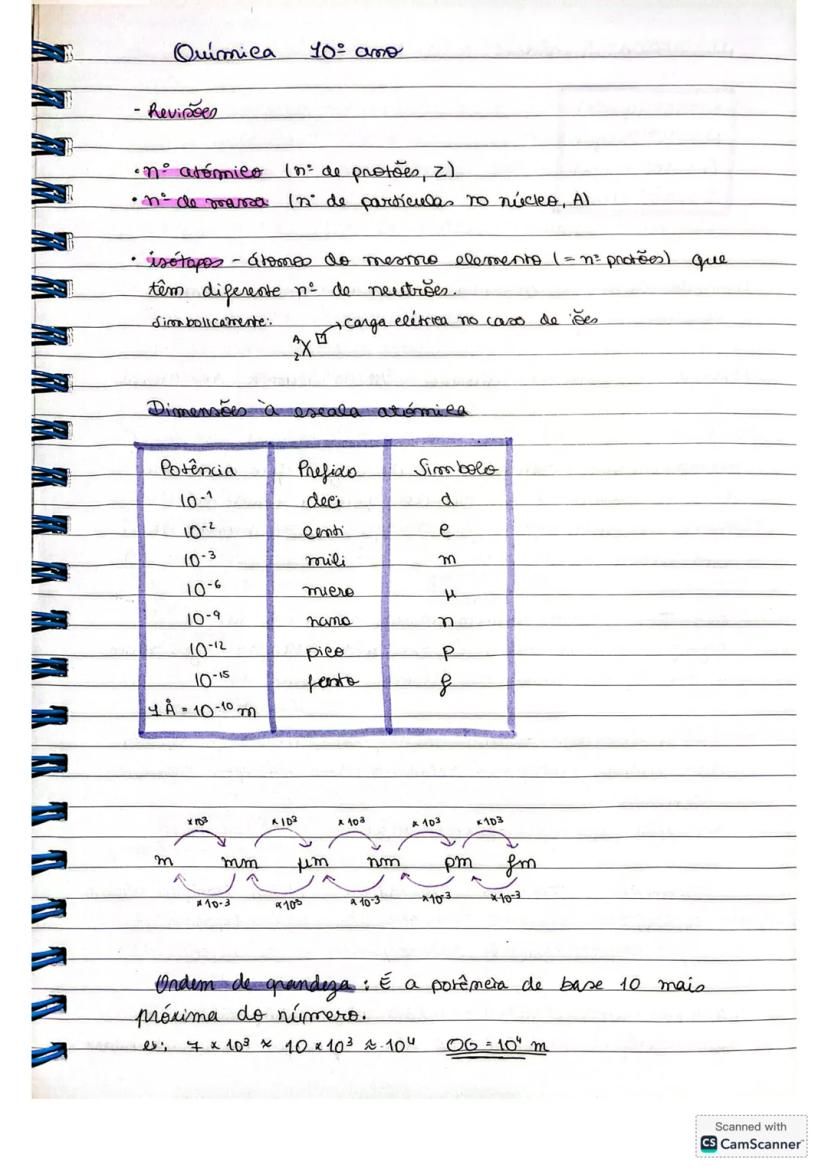 Química 10º ano
- Revisões
• nº atómico (nº de protões, Z)
• nº de massa (nº de partículas no núcleo, A)
• isótopos - átomos do mesmo elemento (= nº protões) que
têm diferente nº de neutrões.
Simbolicamente:
carga elétrica no caso de iões
A
Z X
Dimensões à escala atómica
Potência Prefixo Simbolo
10⁻¹ deci d
10⁻² centi c
10⁻³ mili m
10⁻⁶ micro μ
10⁻⁹ nano n
10⁻¹² pico p
10⁻¹⁵ fento f
1 Å = 10⁻¹⁰ m
×10³ ×10³ ×10³ ×10³ ×10³
m mm μm nm pm fm
×10⁻³ ×10³ ×10⁻³ ×10³ ×10⁻³
Ordem de grandeza: É a potência de base 10 mais
próxima do número.
es: 7 × 10³ ≈ 10 × 10³ ≈ 10⁴ OG = 10⁴ m
Scanned with
CS CamScanner